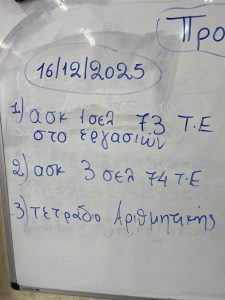 Προ
16/12/2025
1) ασκ 1σελ 73 Τ.Ε
στο εργασιών
2) ασκ 3 σελ 74 Τ.Ε
3) τετράδιο Αριθμητικής